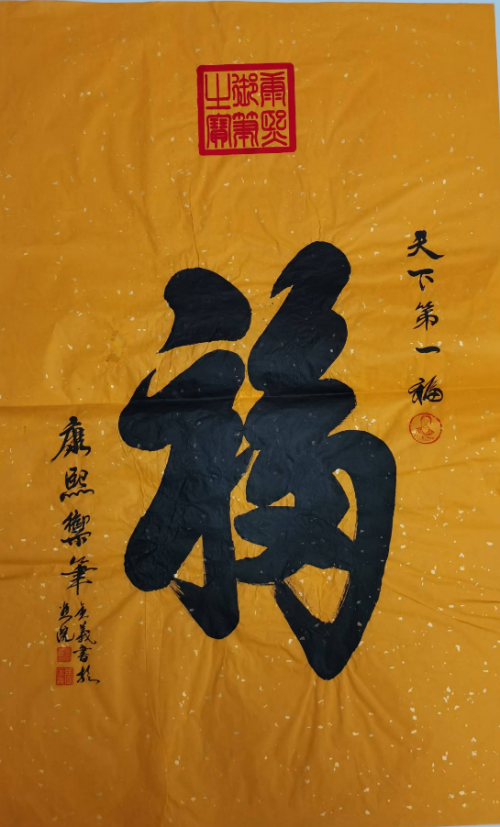 康熙
御筆
之寶
天下第一福
福
康熙御筆
義書於